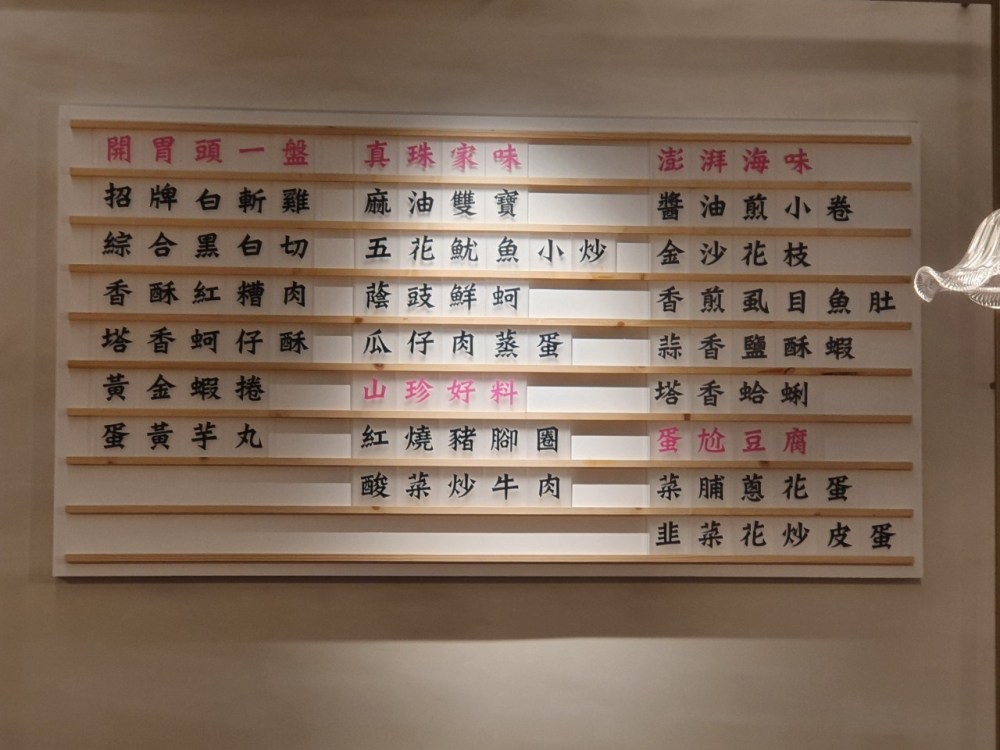 開胃頭一盤
招牌白斬雞
綜合黑白切
香酥紅糟肉
塔香蚵仔酥
黃金蝦捲
蛋黃芋丸
真珠家味
麻油雙寶
五花魷魚小炒
蔭豉鮮蚵
瓜仔肉蒸蛋
山珍好料
紅燒豬腳圈
酸菜炒牛肉
澎湃海味
醬油煎小卷
金沙花枝
香煎虱目魚肚
蒜香鹽酥蝦
塔香蛤蜊
蛋尬豆腐
菜脯蔥花蛋
韭菜花炒皮蛋